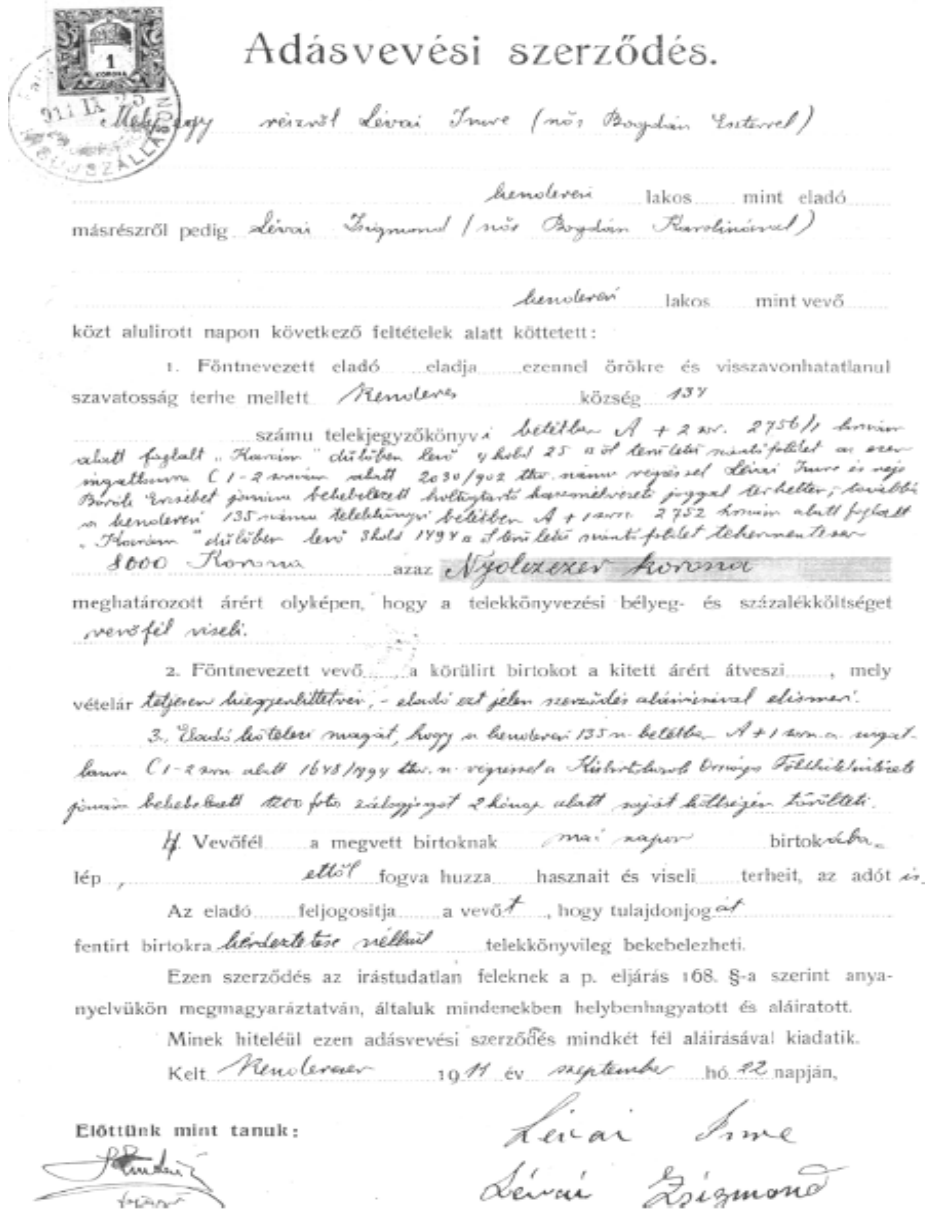 1
KORONA
911 IX 25
Adásvevési szerződés.
Mely egy részről Lévai Imre (nős Bogdán Eszterrel)
kenderesi lakos mint eladó
másrészről pedig Lévai Zsigmond (nős Bogdán Karolinával)
kenderesi lakos mint vevő
közt alulirott napon következő feltételek alatt köttetett:
1. Föntnevezett eladó eladja ezennel örökre és visszavonhatatlanul
szavatosság terhe mellett Kenderes község 137
számu telekjegyzőkönyvi betétben A + 2 sor. 2756/1 hrszám
alatt foglalt „Karám" dűlőben levő 4 hold 25 □ öl területű szántóföldet az ezen
ingatlanra C 1-2 sorszám alatt 2030/902 tkv. számu végzéssel Lévai Imre és neje
Erzsébet javára bekebelezett holtigtartó haszonélvezeti joggal terhelten; továbbá
a kenderesi 135 számu telekkönyvi betétben A + 1 sorsz. 2752 hrszám alatt foglalt
„Karám" dűlőben levő 3 hold 1494 □ öl területű szántóföldet tehermentesen
8000 Korona azaz Nyolczezer korona
meghatározott árért olyképen, hogy a telekkönyvezési bélyeg- és százalékköltséget
vevőfél viseli.
2. Föntnevezett vevő a körülirt birtokot a kitett árért átveszi , mely
vételár teljesen kiegyenlittetvén, - eladó ezt jelen szerződés aláirásával elismeri.
3. Eladó kötelezi magát, hogy a kenderesi 135 sz. betétben A + 1 sorsz. a ingat-
lanra C 1-2 szám alatt 1648/1994 tkv. sz. végzéssel a Kisbirtokosok Országos Földhitelintézete
javára bekebelezett 1200 zálogjogot 2 hónap alatt saját költségén törölteti.
4. Vevőfél a megvett birtoknak mai napon birtokába
lép, ettől fogva huzza hasznait és viseli terheit, az adót is.
Az eladó feljogositja a vevőt , hogy tulajdonjogát
fentirt birtokra kérdeztetése nélkül telekkönyvileg bekebelezheti.
Ezen szerződés az irástudatlan feleknek a p. eljárás 168. §-a szerint anya-
nyelvükön megmagyaráztatván, általuk mindenekben helybenhagyatott és aláiratott.
Minek hiteléül ezen adásvevési szerződés mindkét fél aláirásával kiadatik.
Kelt Kenderesen 1911 év szeptember hó 22 napján,
Előttünk mint tanuk:
Lévai Imre
Lévai Zsigmond